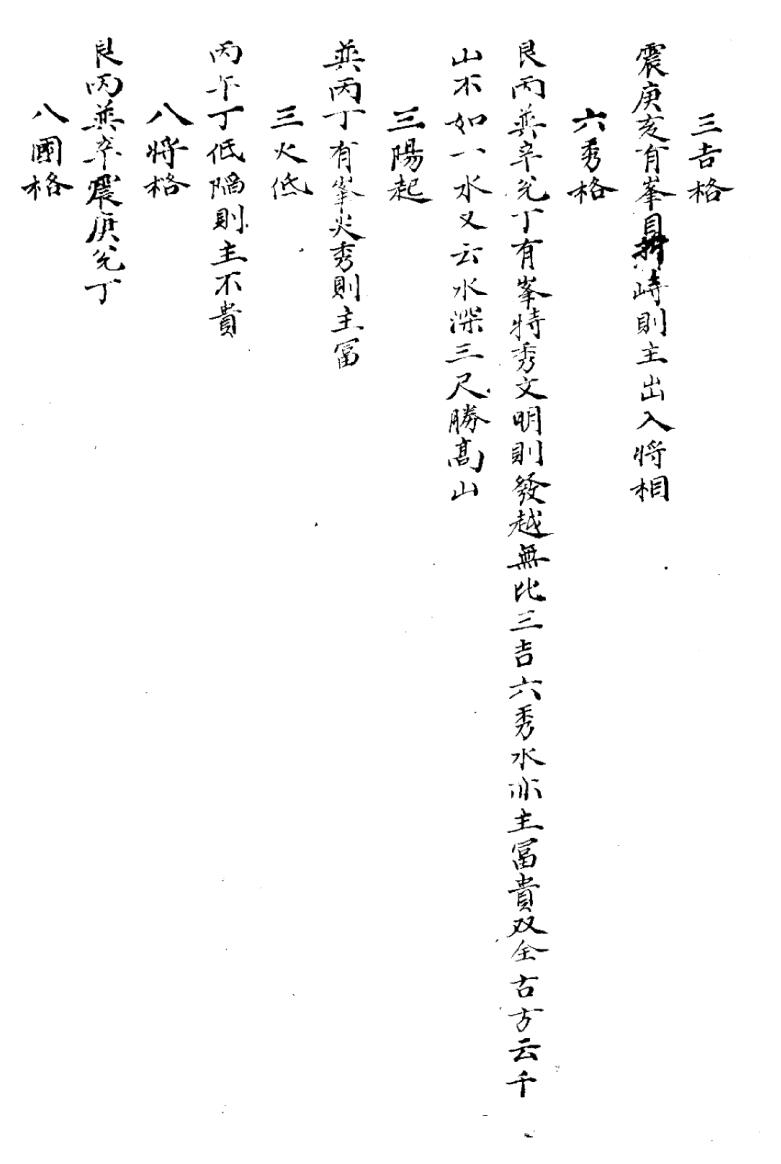 三吉格
震庚亥有峯峙則主出入將相
六秀格
艮丙巽辛兌丁有峯特秀文明則發越無比三吉六秀水亦主冨貴双全古方云千
山不如一水又云水深三尺勝髙山
三陽起
巽丙丁有峯火秀則主冨
三火低
丙午丁低陷則主不貴
八將格
艮丙巽辛震庚兌丁
八國格